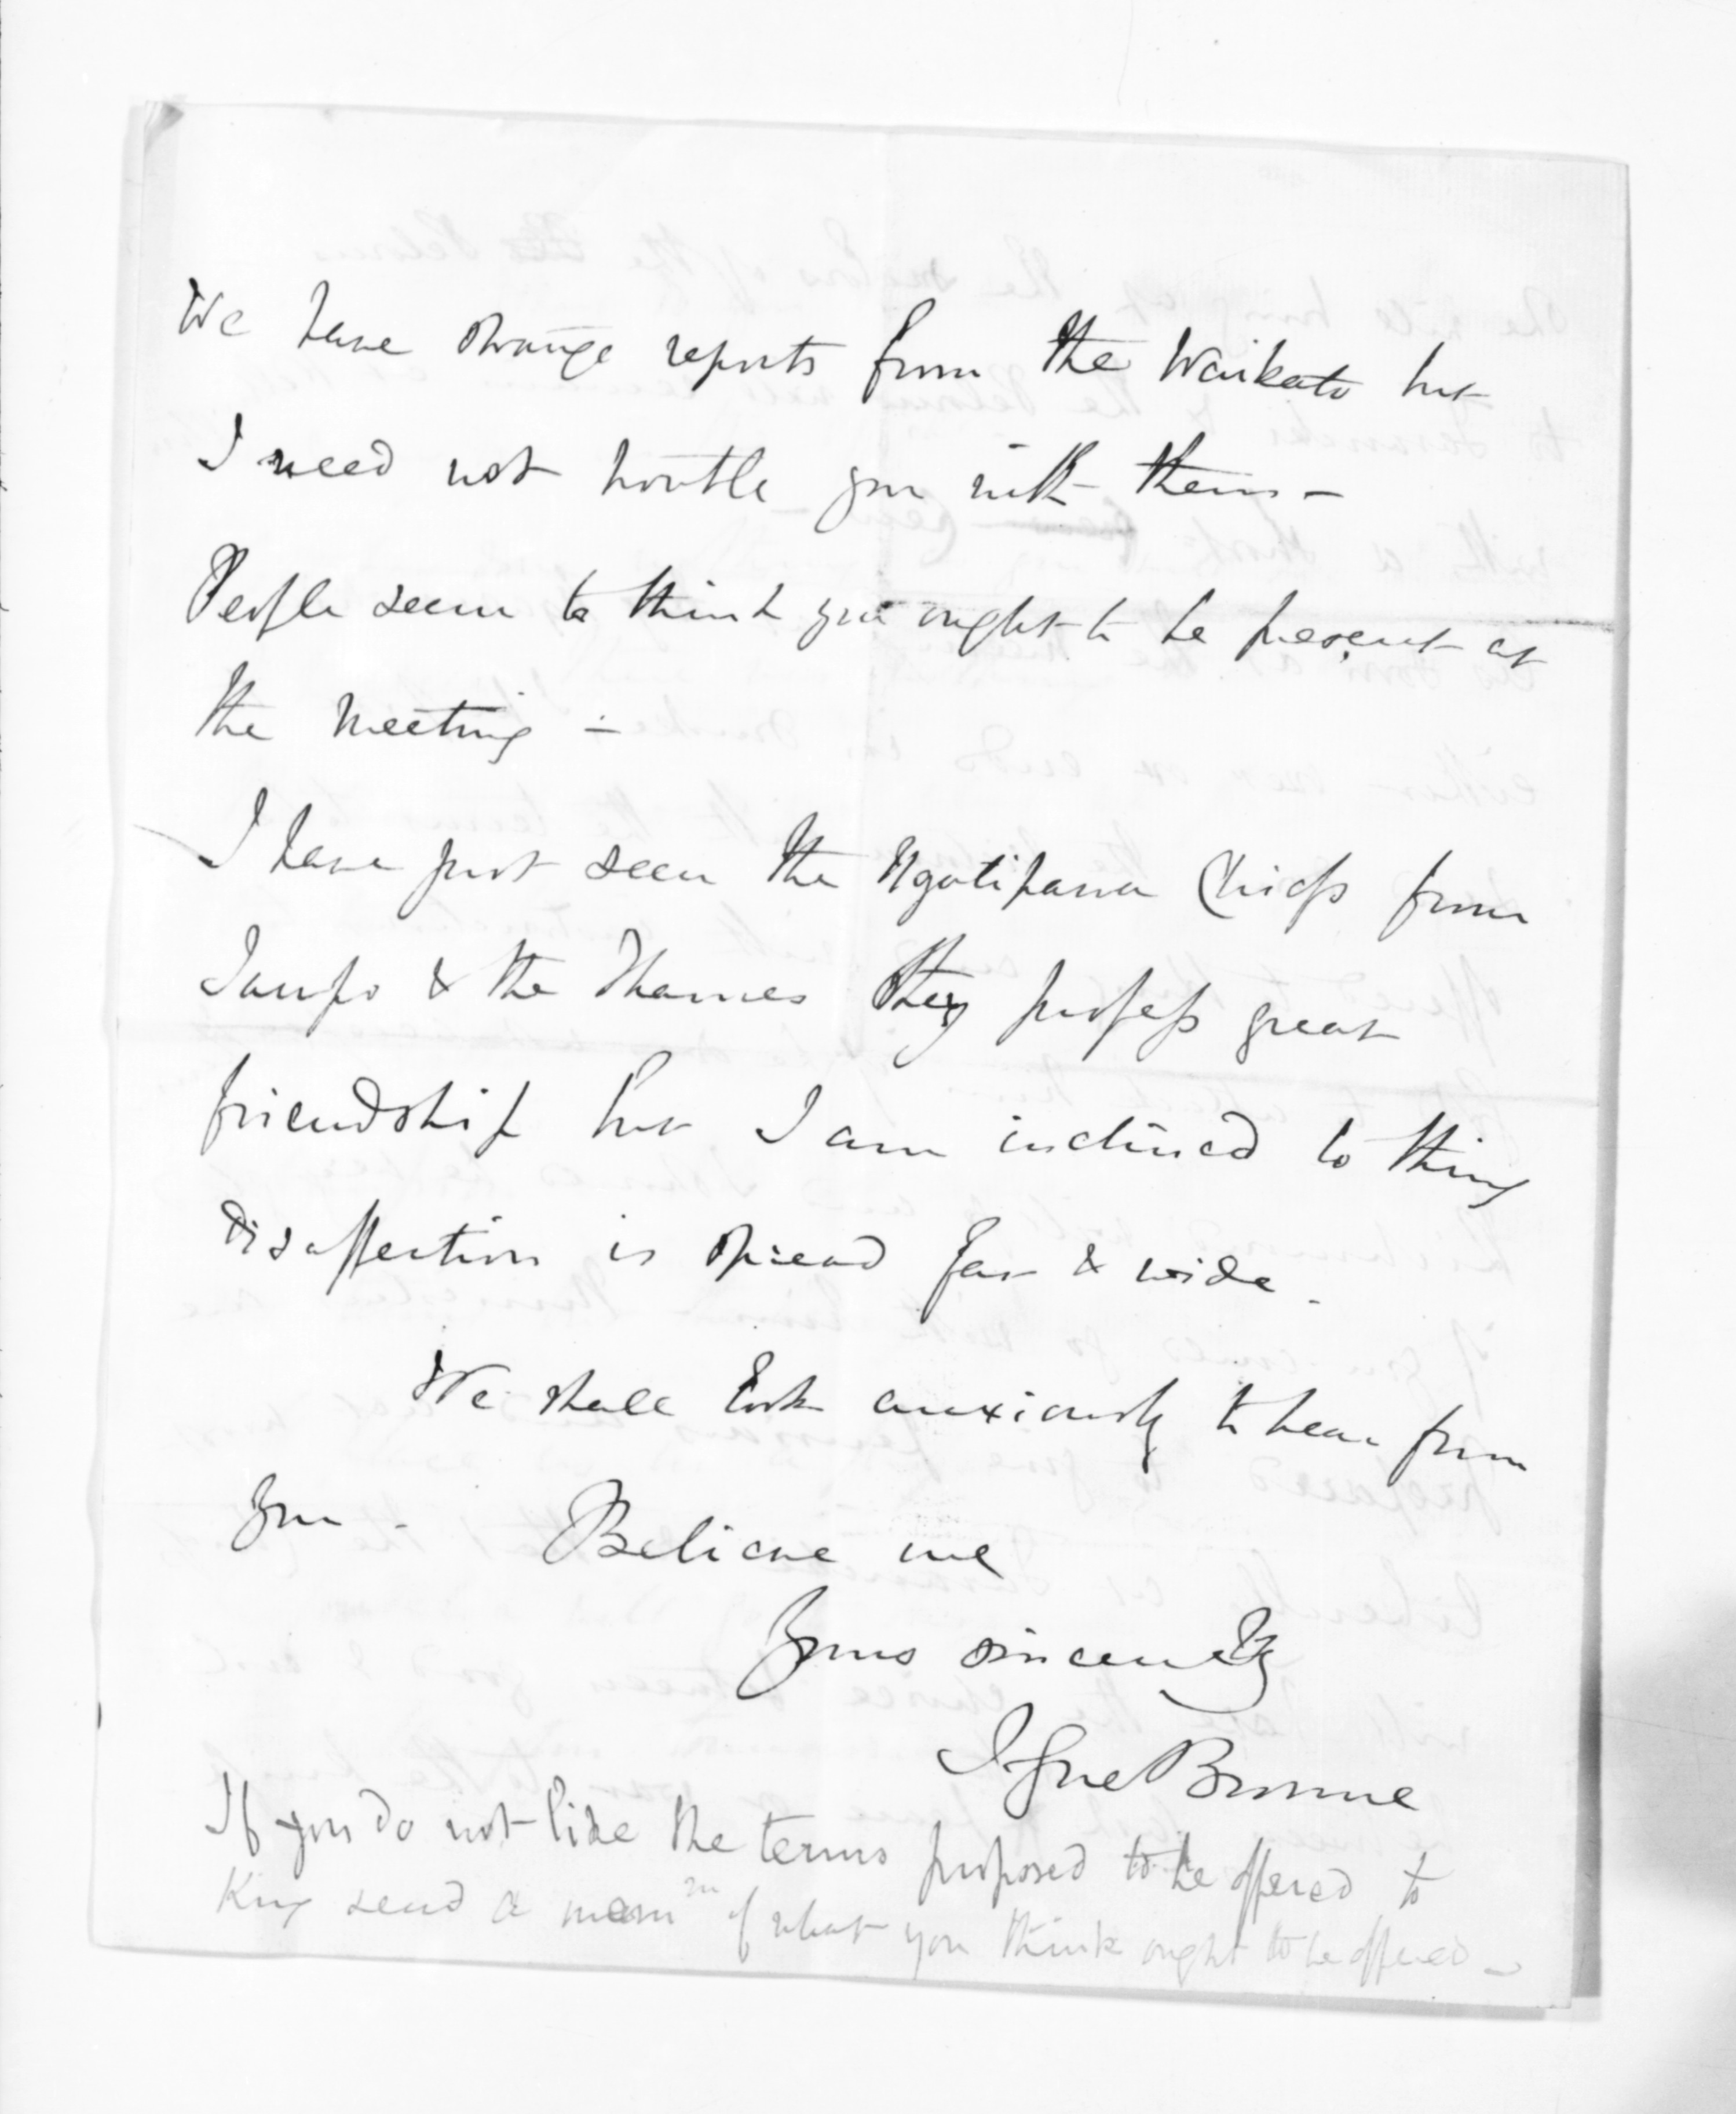 We have strange reports from the Waikato but
I need not trouble you with them -
People seem to think you ought to be present at
the meeting -
I have just seen the Ngatipaoa Chiefs from
Taupo & the Thames they profess great
friendship but I am inclined to think
disaffection is spread far & wide.
We shall look anxiously to hear from
you - Believe me
Yours sincerely
T Gore Browne
If you do not like the terms proposed to be offered to
King send a memm of what you think ought to be offered -